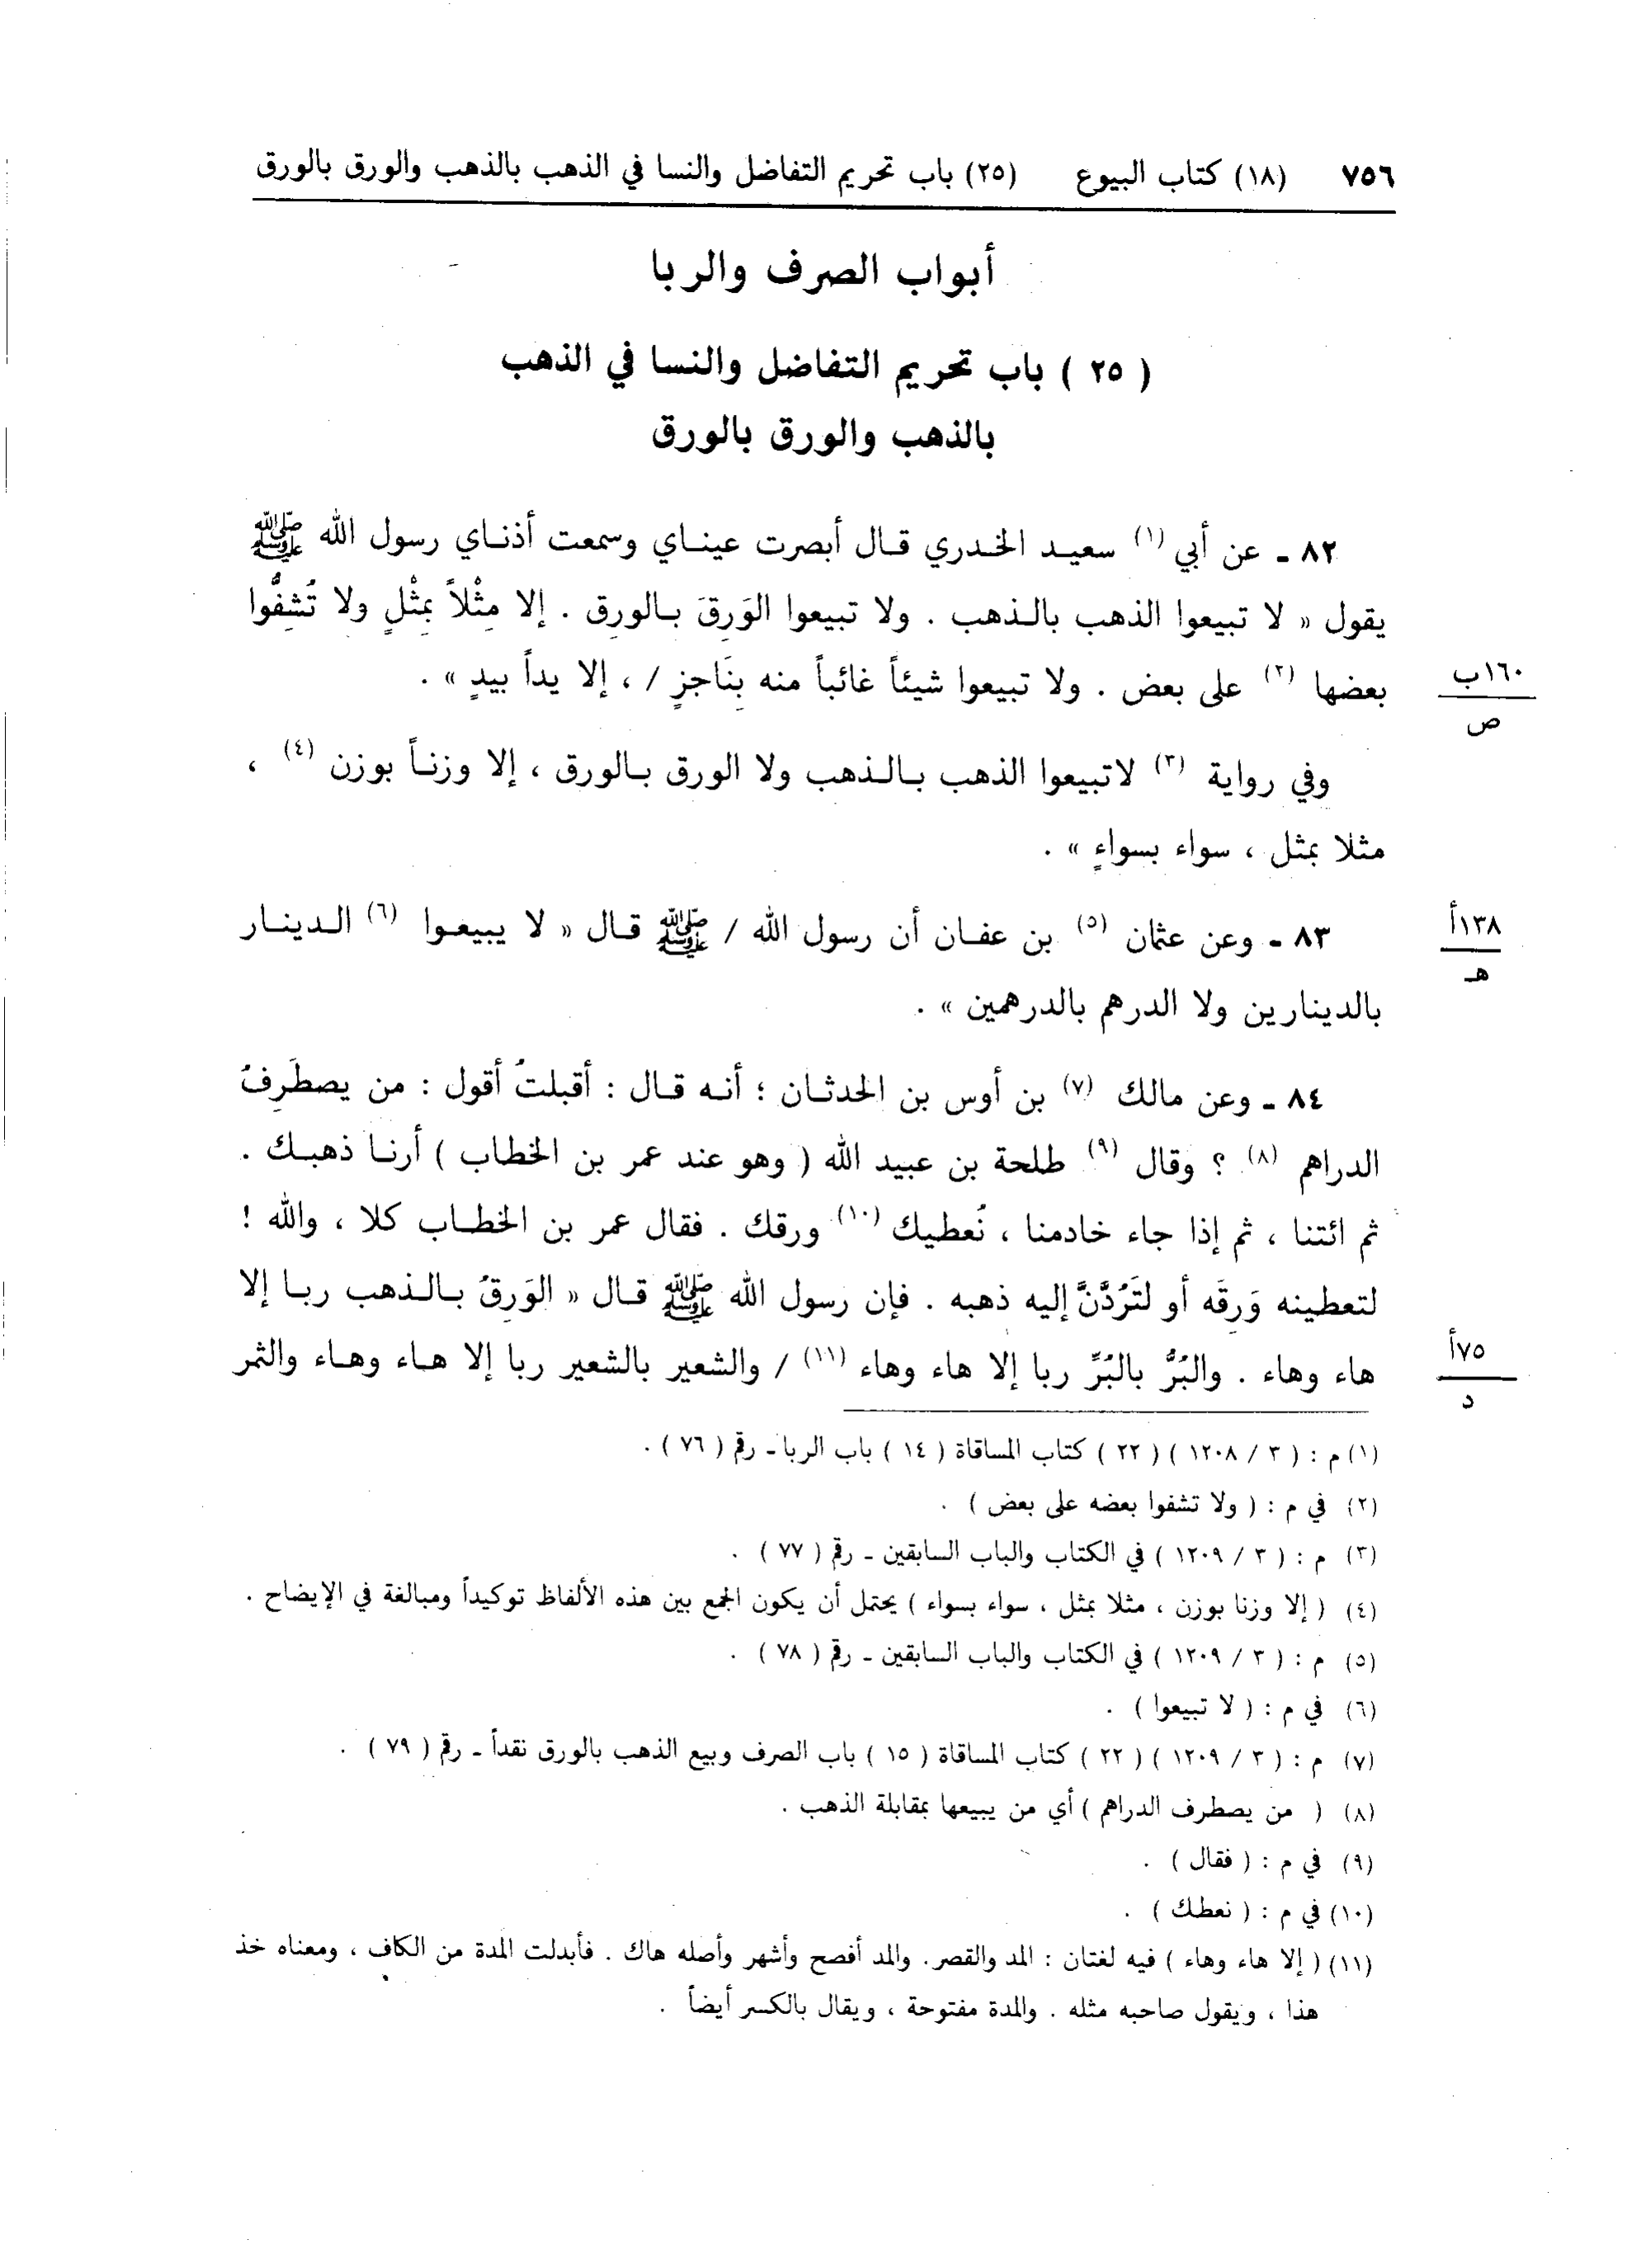 ٧٥٦ (١٨) كتاب البيوع (٢٥) باب تحريم التفاضل والنسا في الذهب بالذهب والورق بالورق
أبواب الصرف والربا
( ٢٥ ) باب تحريم التفاضل والنسا في الذهب
بالذهب والورق بالورق
٨٢ ـ عن أبي (١) سعيد الخدري قال أبصرت عيناي وسمعت أذناي رسول الله ﷺ
يقول « لا تبيعوا الذهب بالذهب . ولا تبيعوا الوَرِقَ بالورِق . إلا مِثْلاً بمِثْلٍ ولا تُشِفُّوا
بعضها (٢) على بعض . ولا تبيعوا شيئاً غائباً منه بِنَاجزٍ / ، إلا يداً بيدٍ » .
١٦٠ب
ص
وفي رواية (٣) لاتبيعوا الذهب بالذهب ولا الورق بالورق ، إلا وزناً بوزن (٤) ،
مثلا بمثل ، سواء بسواءٍ » .
٨٣ ـ وعن عثمان (٥) بن عفان أن رسول الله / ﷺ قال « لا يبيعوا (٦) الدينار
١٣٨أ
هـ
بالدينارين ولا الدرهم بالدرهمين » .
٨٤ ـ وعن مالك (٧) بن أوس بن الحدثان ؛ أنه قال : أقبلتُ أقول : من يصطَرِفُ
الدراهم (٨) ؟ وقال (٩) طلحة بن عبيد الله ( وهو عند عمر بن الخطاب ) أرنا ذهبك .
ثم ائتنا ، ثم إذا جاء خادمنا ، نُعطيك (١٠) ورقك . فقال عمر بن الخطاب كلا ، والله !
لتعطينه وَرِقَه أو لتَرُدَّنَّ إليه ذهبه . فإن رسول الله ﷺ قال « الوَرِقُ بالذهب ربا إلا
هاء وهاء . والبُرُّ بالبُرِّ ربا إلا هاء وهاء (١١) / والشعير بالشعير ربا إلا هاء وهاء والثمر
٧٥أ
د
(١) م : ( ٣ / ١٢٠٨ ) ( ٢٢ ) كتاب المساقاة ( ١٤ ) باب الربا ـ رقم ( ٧٦ ) .
(٢) في م : ( ولا تشفوا بعضه على بعض ) .
(٣) م : ( ٣ / ١٢٠٩ ) في الكتاب والباب السابقين ـ رقم ( ٧٧ ) .
(٤) ( إلا وزنا بوزن ، مثلا بمثل ، سواء بسواء ) يحتمل أن يكون الجمع بين هذه الألفاظ توكيداً ومبالغة في الإيضاح .
(٥) م : ( ٣ / ١٢٠٩ ) في الكتاب والباب السابقين ـ رقم ( ٧٨ ) .
(٦) في م : ( لا تبيعوا ) .
(٧) م : ( ٣ / ١٢٠٩ ) ( ٢٢ ) كتاب المساقاة ( ١٥ ) باب الصرف وبيع الذهب بالورق نقداً ـ رقم ( ٧٩ ) .
(٨) ( من يصطرف الدراهم ) أي من يبيعها بمقابلة الذهب .
(٩) في م : ( فقال ) .
(١٠) في م : ( نعطك ) .
(١١) ( إلا هاء وهاء ) فيه لغتان : المد والقصر. والمد أفصح وأشهر وأصله هاك . فأبدلت المدة من الكاف ، ومعناه خذ
هذا ، ويقول صاحبه مثله . والمدة مفتوحة ، ويقال بالكسر أيضاً .